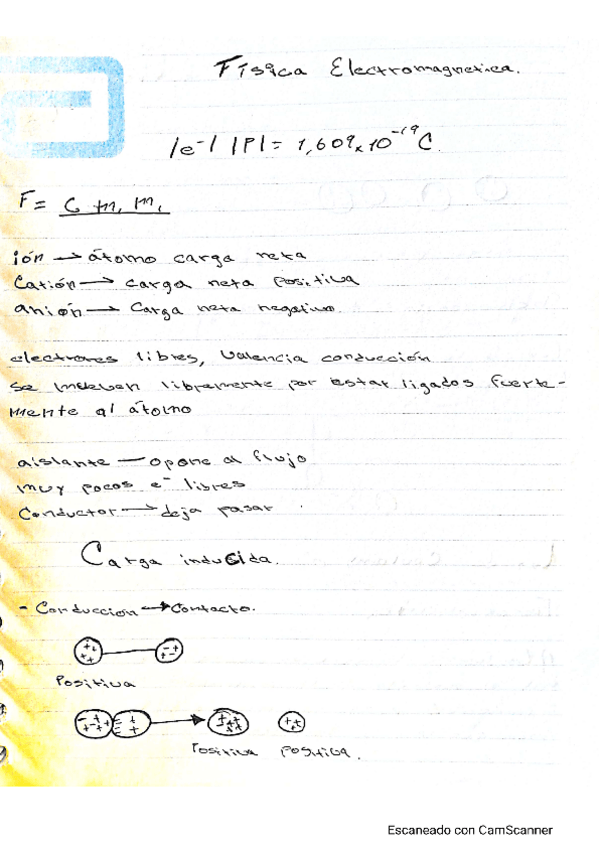 Física Electromagnetica.
|e⁻| |P| = 1,609x10⁻¹⁹C.
F = G m, m,
ión → átomo carga neta
Catión → carga neta positiva
anión → Carga neta negativo.
electrones libres, valencia conducción
se mueven libremente por estar ligados fuerte-
mente al átomo
aislante — opone al flujo
muy pocos e⁻ libres
Conductor → deja pasar
Carga inducida.
- Conduccion → Contacto.
++ ++ -+ -+
Positiva
Positiva positiva.
Escaneado con CamScanner